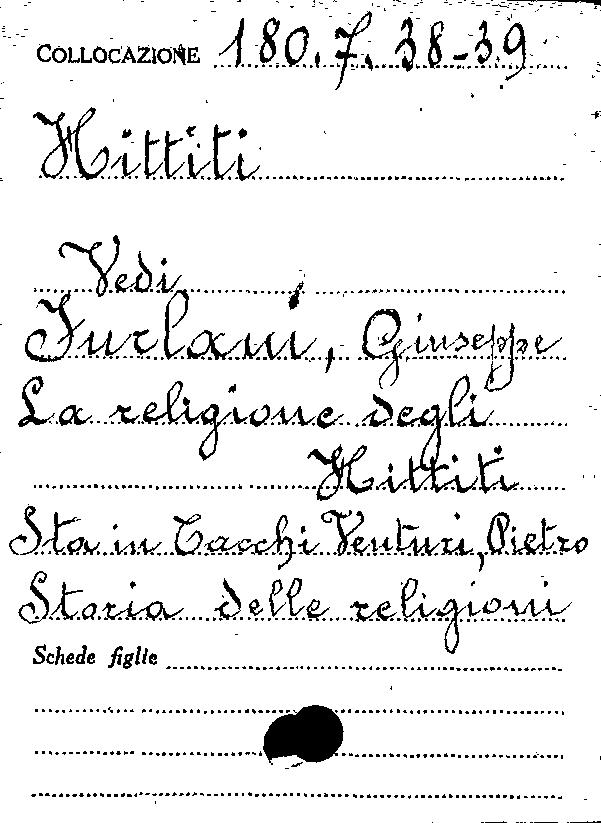 COLLOCAZIONE 180.7.38-39
Hittiti
Vedi
Furlani, Giuseppe
La religione degli
Hittiti
Sta in Tacchi Venturi, Pietro
Storia delle religioni
Schede figlie